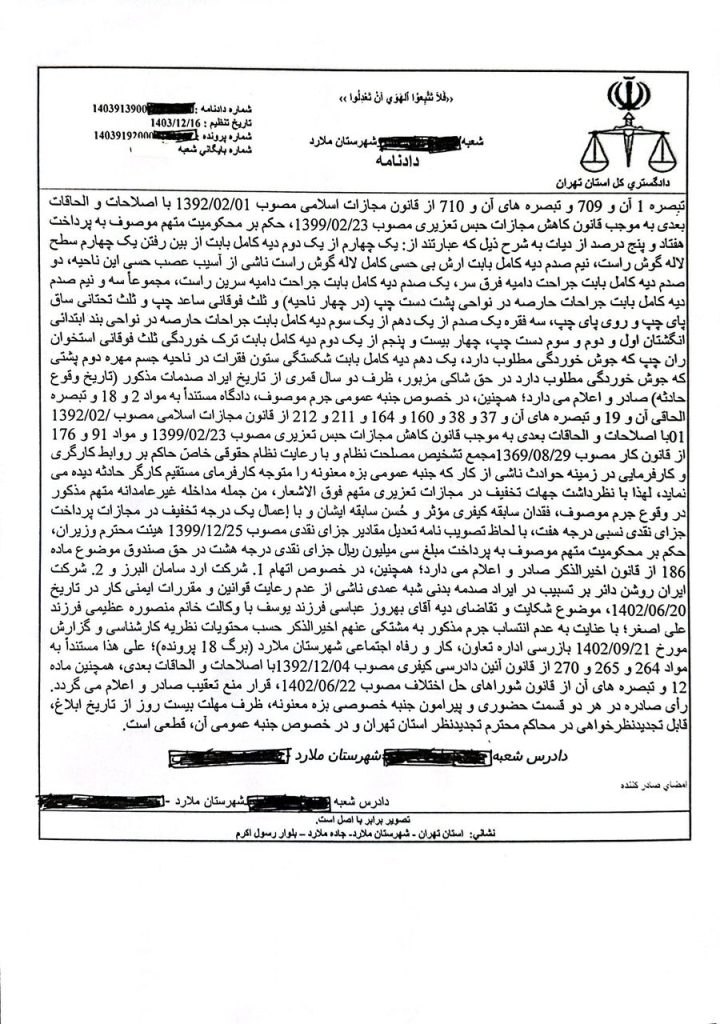 «فَلَا تَتَّبِعُوا الْهَوَىٰ أَنْ تَعْدِلُوا»
شماره دادنامه : 1403913900
تاریخ تنظیم : 1403/12/16
شماره پرونده : 14039192000
شماره بایگانی شعبه
شعبه شهرستان ملارد
دادنامه
دادگستری کل استان تهران
تبصره 1 آن و 709 و تبصره های آن و 710 از قانون مجازات اسلامی مصوب 1392/02/01 با اصلاحات و الحاقات
بعدی به موجب قانون کاهش مجازات حبس تعزیری مصوب 1399/02/23، حکم بر محکومیت متهم موصوف به پرداخت
هفتاد و پنج درصد از دیات به شرح ذیل که عبارتند از: یک چهارم از یک دوم دیه کامل بابت از بین رفتن یک چهارم سطح
لاله گوش راست، نیم صدم دیه کامل بابت ارش بی حسی کامل لاله گوش راست ناشی از آسیب عصب حسی این ناحیه، دو
صدم دیه کامل بابت جراحت دامیه فرق سر، یک صدم دیه کامل بابت جراحت دامیه سرین راست، مجموعاً سه و نیم صدم
دیه کامل بابت جراحات حارصه در نواحی پشت دست چپ (در چهار ناحیه) و ثلث فوقانی ساعد چپ و ثلث تحتانی ساق
پای چپ و روی پای چپ، سه فقره یک صدم از یک دهم از یک سوم دیه کامل بابت جراحات حارصه در نواحی بند ابتدائی
انگشتان اول و دوم و سوم دست چپ، چهار بیست و پنجم از یک دوم دیه کامل بابت ترک خوردگی ثلث فوقانی استخوان
ران چپ که جوش خوردگی مطلوب دارد، یک دهم دیه کامل بابت شکستگی ستون فقرات در ناحیه جسم مهره دوم پشتی
که جوش خوردگی مطلوب دارد در حق شاکی مزبور، ظرف دو سال قمری از تاریخ ایراد صدمات مذکور (تاریخ وقوع
حادثه) صادر و اعلام می دارد؛ همچنین، در خصوص جنبه عمومی جرم موصوف، دادگاه مستنداً به مواد 2 و 18 و تبصره
الحاقی آن و 19 و تبصره های آن و 37 و 38 و 160 و 164 و 211 و 212 از قانون مجازات اسلامی مصوب 1392/02/
01با اصلاحات و الحاقات بعدی به موجب قانون کاهش مجازات حبس تعزیری مصوب 1399/02/23 و مواد 91 و 176
از قانون کار مصوب 1369/08/29مجمع تشخیص مصلحت نظام و با رعایت نظام حقوقی خاصّ حاکم بر روابط کارگری
و کارفرمایی در زمینه حوادث ناشی از کار که جنبه عمومی بزه معنونه را متوجه کارفرمای مستقیم کارگر حادثه دیده می
نماید، لهذا با نظرداشت جهات تخفیف در مجازات تعزیری متهم فوق الاشعار، من جمله مداخله غیرعامدانه متهم مذکور
در وقوع جرم موصوف، فقدان سابقه کیفری مؤثر و حُسن سابقه ایشان و با إعمال یک درجه تخفیف در مجازات پرداخت
جزای نقدی نسبی درجه هفت، با لحاظ تصویب نامه تعدیل مقادیر جزای نقدی مصوب 1399/12/25 هیئت محترم وزیران،
حکم بر محکومیت متهم موصوف به پرداخت مبلغ سی میلیون ریال جزای نقدی درجه هشت در حق صندوق موضوع ماده
186 از قانون اخیرالذکر صادر و اعلام می دارد؛ همچنین، در خصوص اتهام 1. شرکت ارد سامان البرز و 2. شرکت
ایران روشن دائر بر تسبیب در ایراد صدمه بدنی شبه عمدی ناشی از عدم رعایت قوانین و مقررات ایمنی کار در تاریخ
1402/06/20، موضوع شکایت و تقاضای دیه آقای بهروز عباسی فرزند یوسف با وکالت خانم منصوره عظیمی فرزند
علی اصغر؛ با عنایت به عدم انتساب جرم مذکور به مشتکی عنهم اخیرالذکر حسب محتویات نظریه کارشناسی و گزارش
مورخ 1402/09/21 بازرسی اداره تعاون، کار و رفاه اجتماعی شهرستان ملارد (برگ 18 پرونده)؛ علی هذا مستنداً به
مواد 264 و 265 و 270 از قانون آئین دادرسی کیفری مصوب 1392/12/04با اصلاحات و الحاقات بعدی، همچنین ماده
12 و تبصره های آن از قانون شوراهای حل اختلاف مصوب 1402/06/22، قرار منع تعقیب صادر و اعلام می گردد.
رأی صادره در هر دو قسمت حضوری و پیرامون جنبه خصوصی بزه معنونه، ظرف مهلت بیست روز از تاریخ ابلاغ،
قابل تجدیدنظرخواهی در محاکم محترم تجدیدنظر استان تهران و در خصوص جنبه عمومی آن، قطعی است.
دادرس شعبه شهرستان ملارد
امضای صادر کننده
دادرس شعبه شهرستان ملارد -
تصویر برابر با اصل است.
نشانی: استان تهران - شهرستان ملارد- جاده ملارد – بلوار رسول اکرم